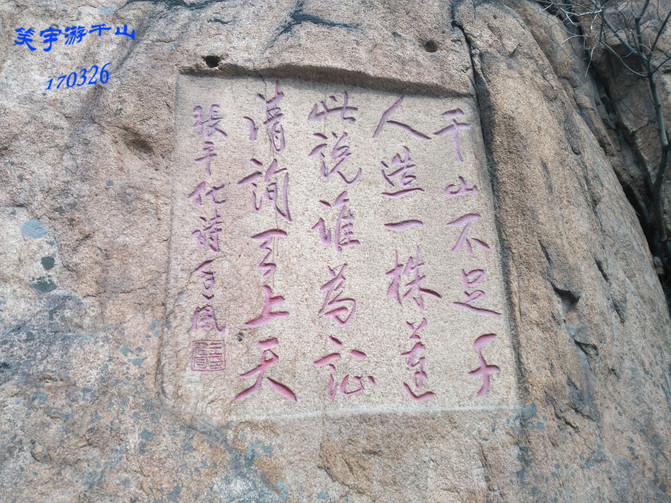 笑宇游千山
170326
千山不足千
人造一株莲
此说谁為证
请询上天
張平化诗